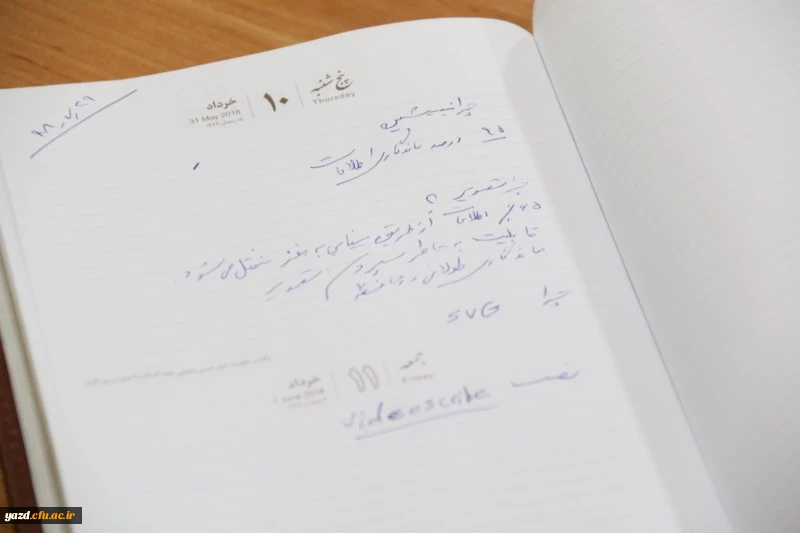 ۹۸،۷،۲۹
پنج شنبه ۱۰ خرداد
Thursday 31 May 2018
چرا انیمیشن
۹۵ درصد ماندگاری اطلاعات
چرا تصویر ؟
اطلاعات از طریق بینایی به مغز منتقل می شود.
قابلیت به خاطر سپردن تصویر
ماندگاری طولانی در حافظه
چرا SVG
جمعه ۱۱ خرداد
Friday 1 June 2018
نصب videoscribe
yazd.cfu.ac.ir